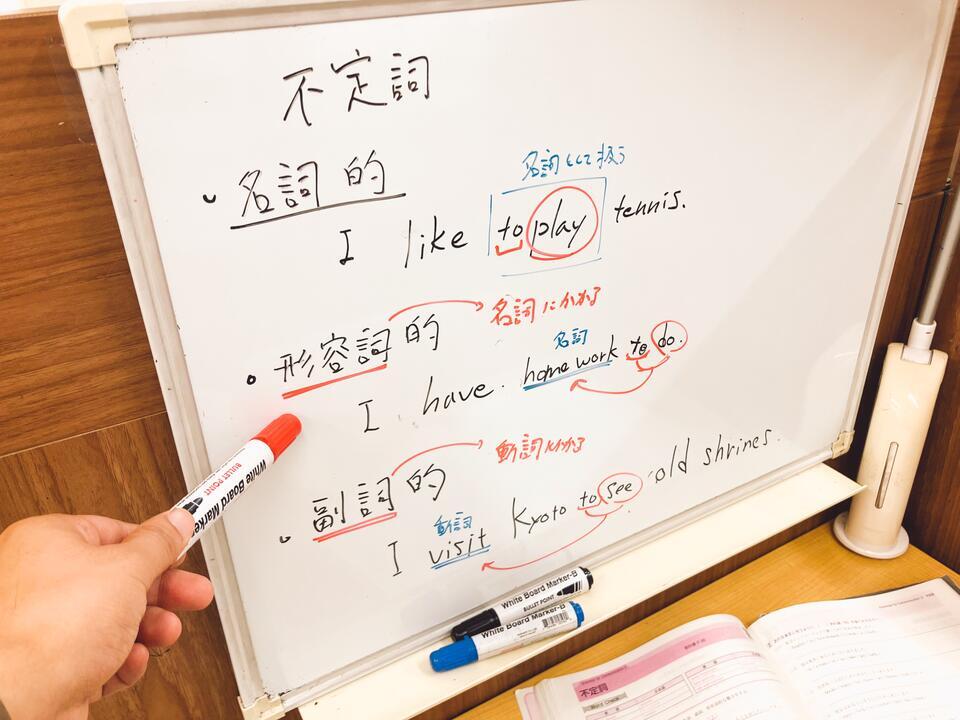 不定詞
名詞的
名詞として扱う
I like to play tennis.
形容詞的
名詞にかかる
名詞
I have. home work to do.
副詞的
動詞にかかる
動詞
I visit Kyoto to see old shrines.
White Board Marker
BULLET POINT
White Board Marker-B
BULLET POINT
White Board Marker-B
不定詞